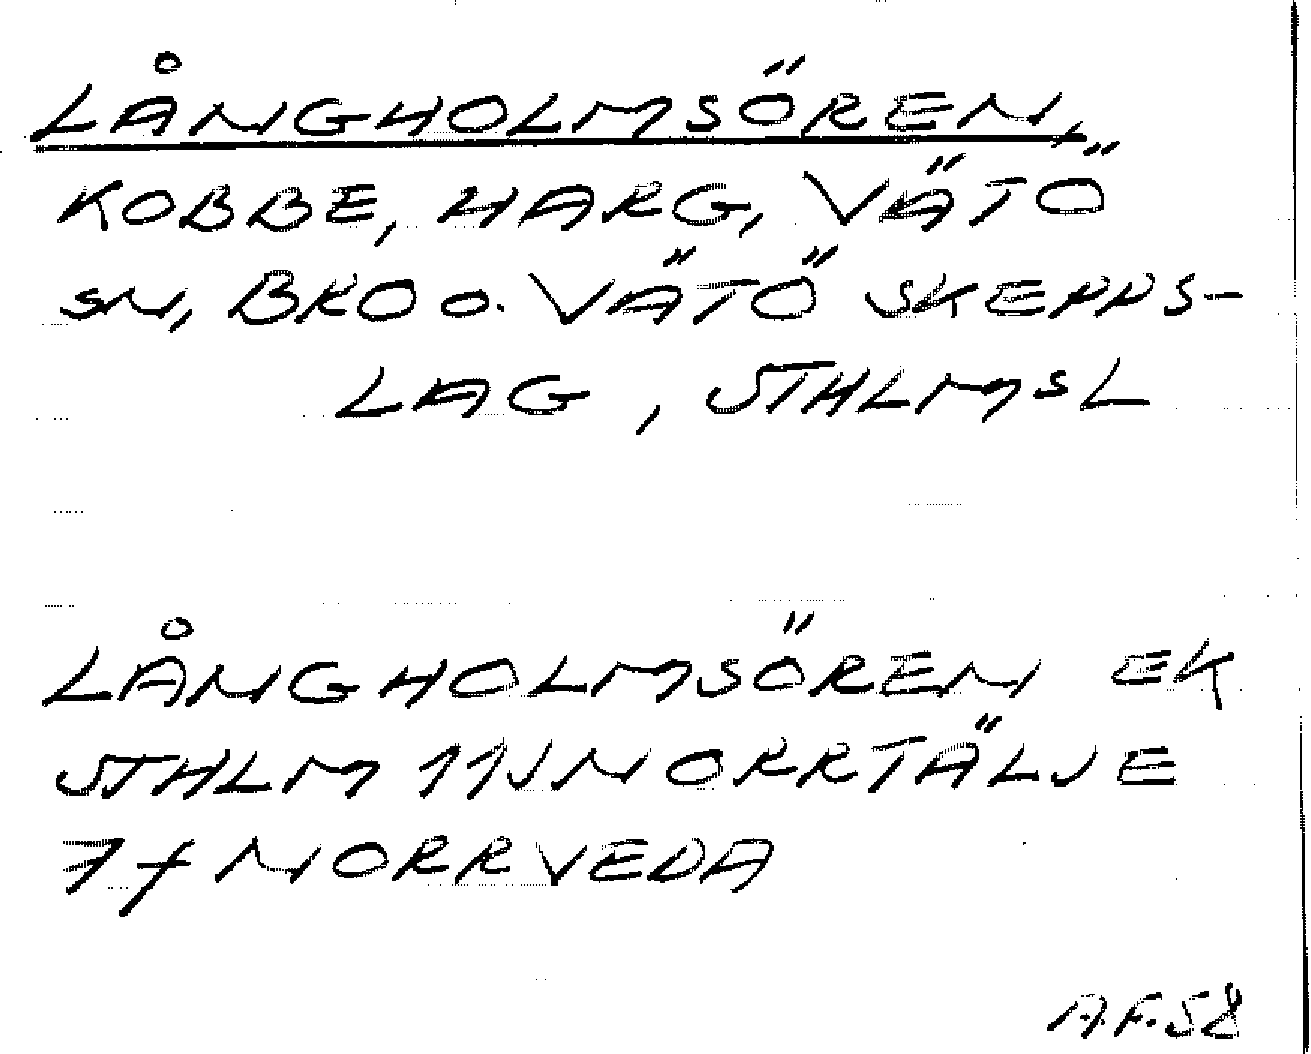 LÅNGHOLMSÖREN,
KOBBE, HARG, VÄTÖ
SN, BRO O. VÄTÖ SKEPPS-
LAG, STHLMSL
LÅNGHOLMSÖREN EK
STHLM 11J NORRTÄLJE
7f NORRVEDA
A.F.58